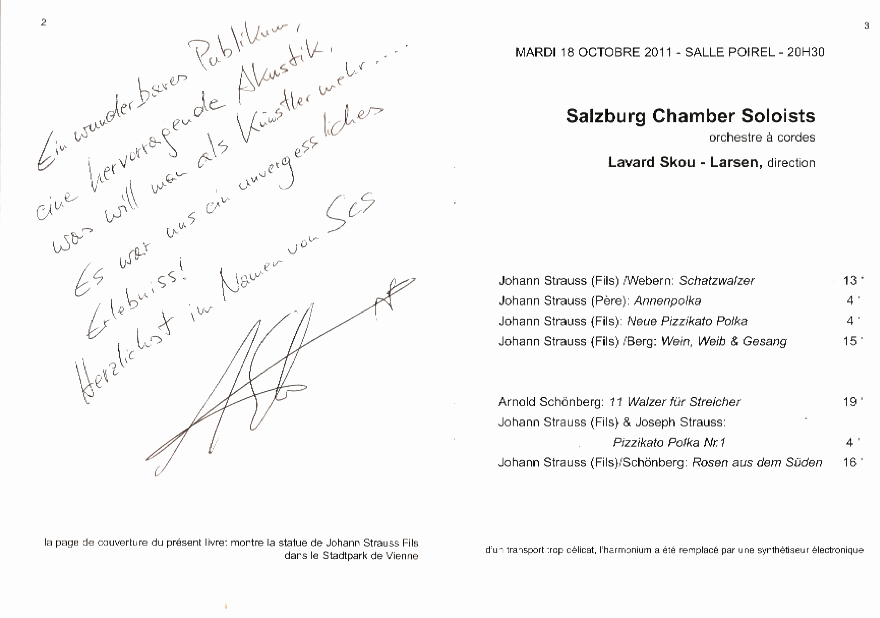 2
Ein wunderbares Publikum,
eine hervorragende Akustik,
was will man als Künstler mehr....
Es war uns ein unvergessliches
Erlebniss!
Herzlichst im Namen von SCS
la page de couverture du présent livret montre la statue de Johann Strauss Fils
dans le Stadtpark de Vienne
3
MARDI 18 OCTOBRE 2011 - SALLE POIREL - 20H30
Salzburg Chamber Soloists
orchestre à cordes
Lavard Skou - Larsen, direction
Johann Strauss (Fils) /Webern: Schatzwalzer 13 '
Johann Strauss (Père): Annenpolka 4 '
Johann Strauss (Fils): Neue Pizzikato Polka 4 '
Johann Strauss (Fils) /Berg: Wein, Weib & Gesang 15 '
Arnold Schönberg: 11 Walzer für Streicher 19 '
Johann Strauss (Fils) & Joseph Strauss:
Pizzikato Polka Nr.1 4 '
Johann Strauss (Fils)/Schönberg: Rosen aus dem Süden 16 '
d'un transport trop délicat, l'harmonium a été remplacé par une synthétiseur électronique